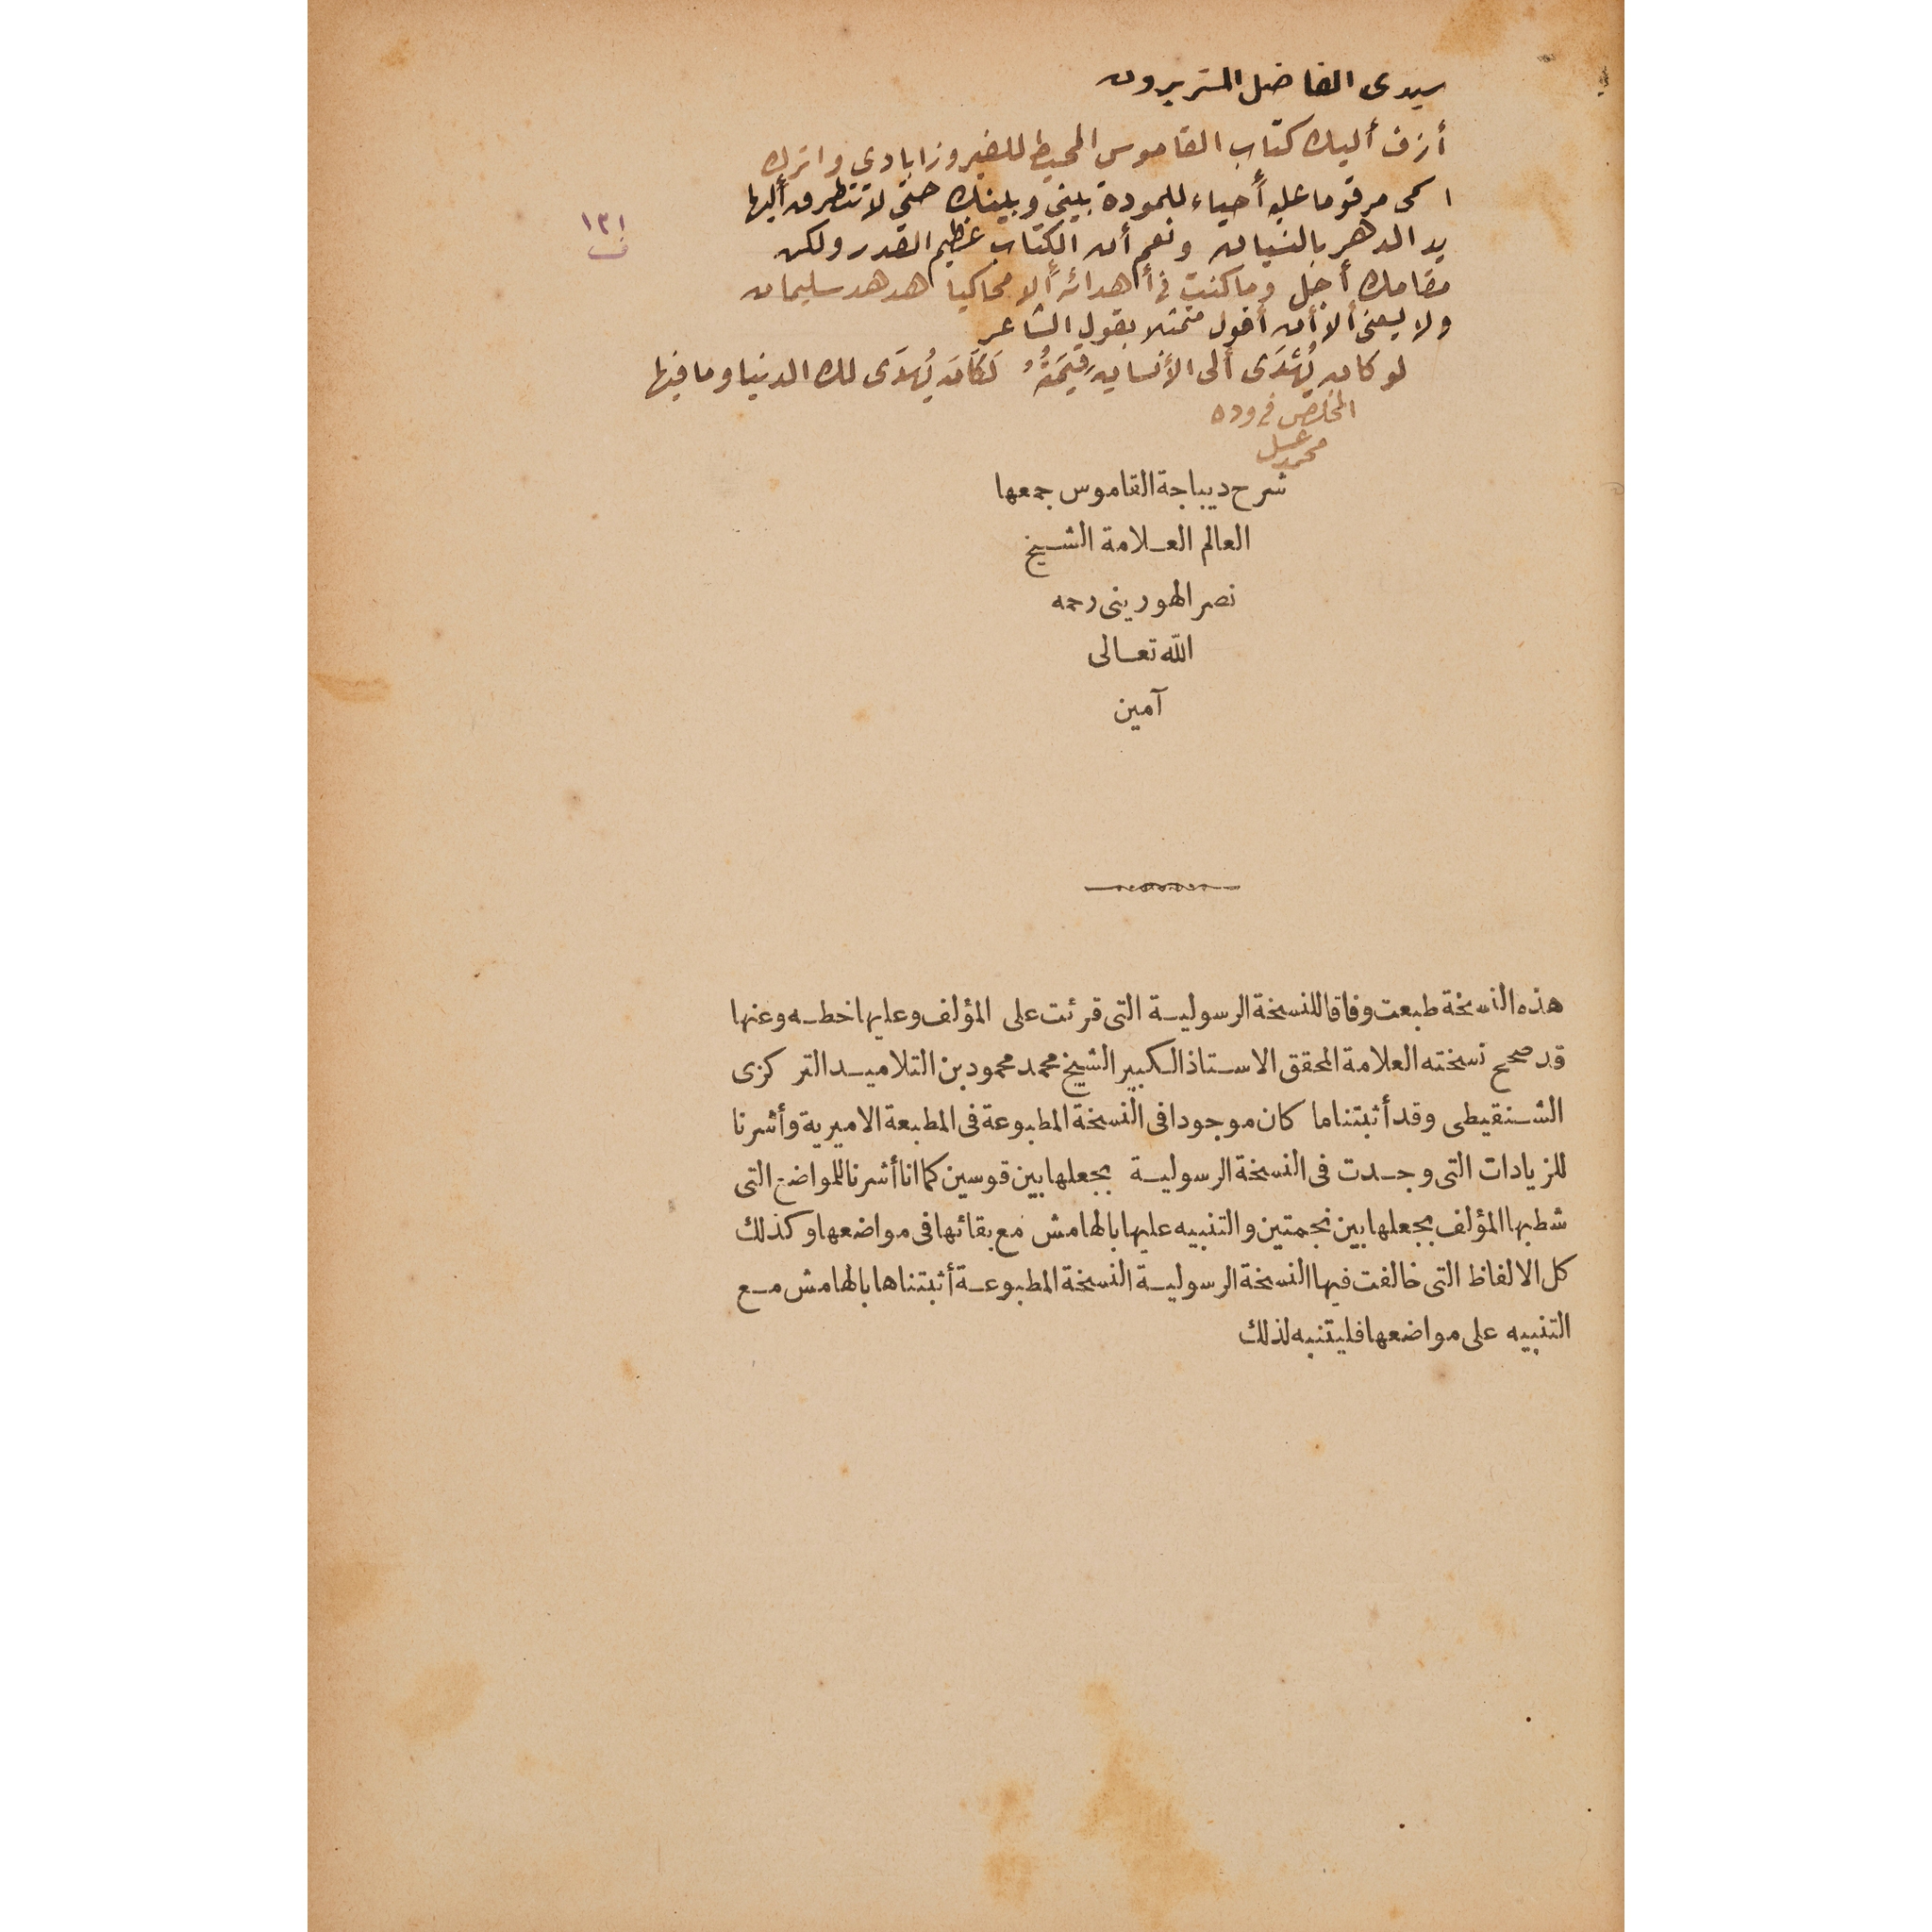 سيدى الفاضل المستر برون
أزف أليك كتاب القاموس المحيط للفيروزابادي واترك
اسمى مرقوما عليه أحياء للمودة بينى وبينك حتى لا تتطرق أليها
يد الدهر بالنسيان ونعم أن الكتاب عظيم القدر ولكن
مقامك أجل وما كنت فى أهدائه ألا محاكيا هدهد سليمان
ولا يسعنى ألا أن أقول متمثلا بقول الشاعر
لو كان يُهْدَى ألى الأنسان قيمَتُهُ لَكَانَ يُهدَى لك الدنيا وما فيها
المخلص فى وده
محمد عسل
١٣١
ف
شرح ديباجة القاموس جمعها
العالم العلامة الشيخ
نصر الهورينى رحمه
الله تعالى
آمين
هذه النسخة طبعت وفاقا للنسخة الرسولية التى قرئت على المؤلف وعليها خطه وعنها
قد صحح نسخته العلامة المحقق الاستاذ الكبير الشيخ محمد محمود بن التلاميد التركزى
الشنقيطى وقد أثبتنا ما كان موجودا فى النسخة المطبوعة فى المطبعة الاميرية وأشرنا
للزيادات التى وجدت فى النسخة الرسولية بجعلها بين قوسين كما انا أشرنا للمواضع التى
شطبها المؤلف بجعلها بين نجمتين والتنبيه عليها بالهامش مع بقائها فى مواضعها وكذلك
كل الالفاظ التى خالفت فيها النسخة الرسولية النسخة المطبوعة أثبتناها بالهامش مع
التنبيه على مواضعها فليتنبه لذلك